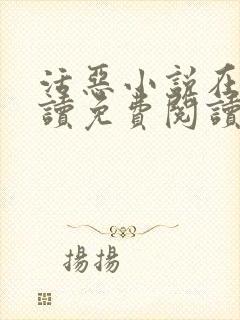 活惡小說在
讀免費閱讀
揚揚